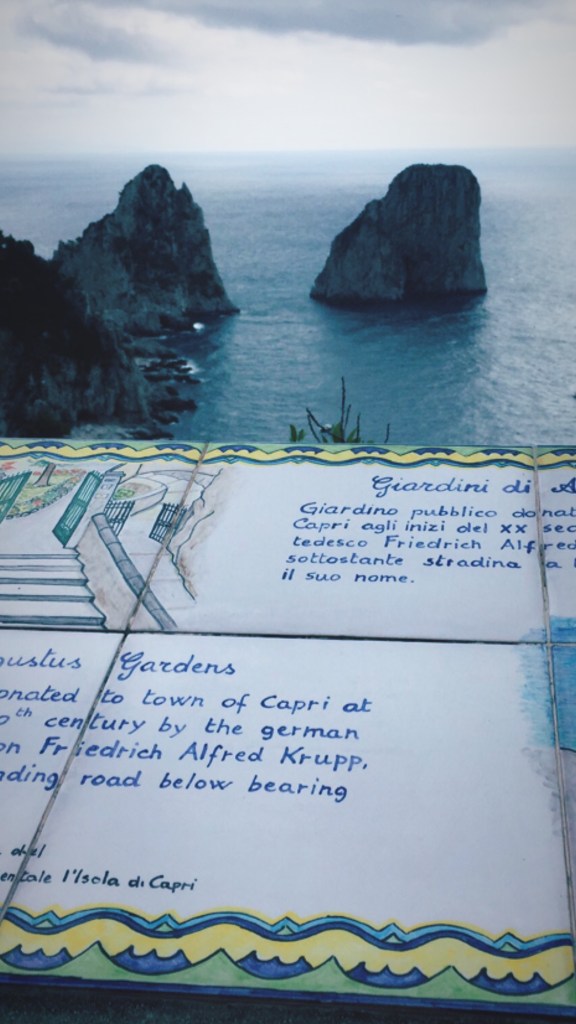 Giardini di A
Giardino pubblico donat
Capri agli inizi del XX sec
tedesco Friedrich Alfred
sottostante stradina a
il suo nome.
gustus Gardens
onated to town of Capri at
0th century by the german
on Friedrich Alfred Krupp,
nding road below bearing
del
entale l'Isola di Capri